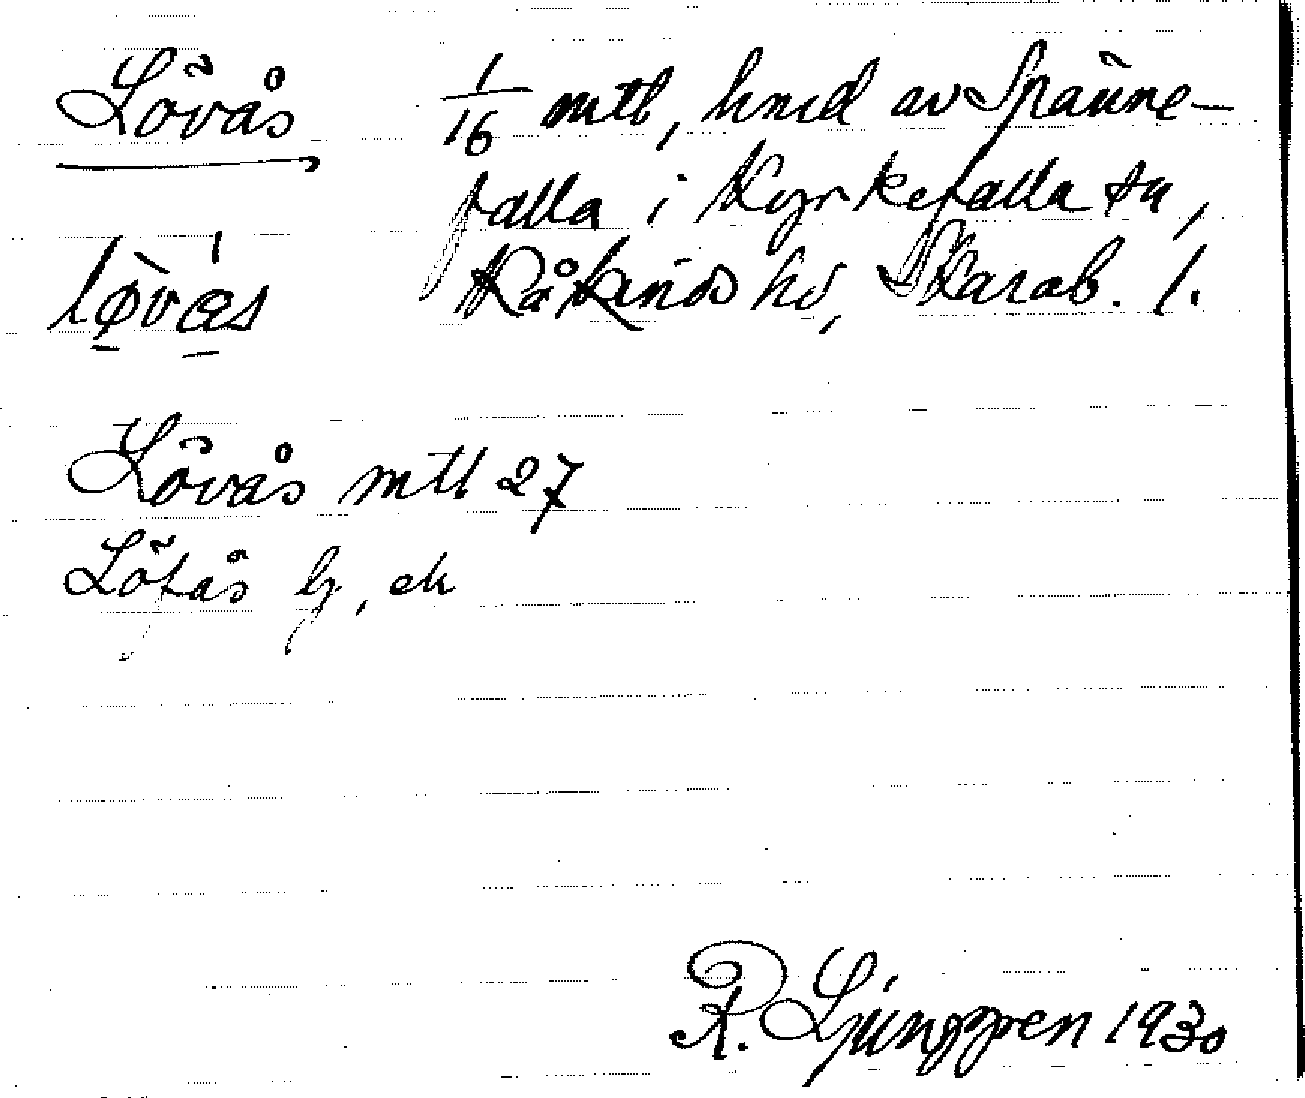 Lövås 1/16 mtl, hmd av Spänne-
falla i Kyrkefalla sn,
løvås Kåkinds hd, Skarab. l.
Lövås mtl 27
Löfås bg, ek
R. Ljunggren 1930